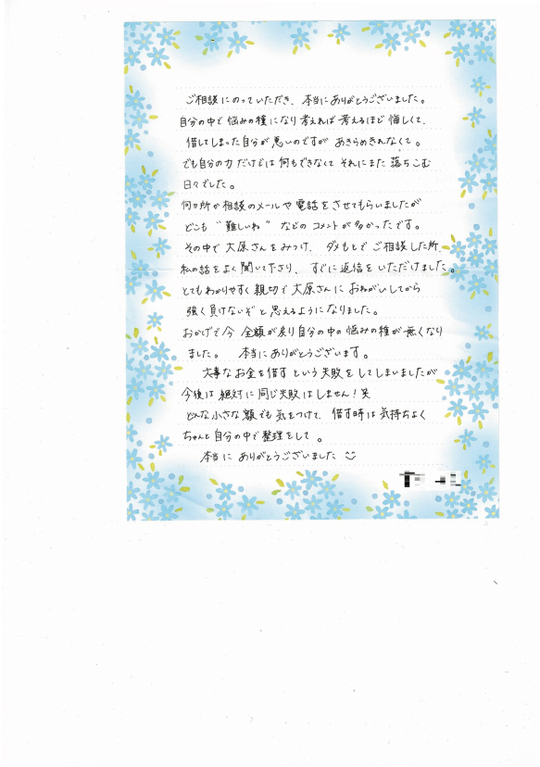 ご相談にのっていただき、本当にありがとうございました。
自分の中で悩みの種になり考えれば考えるほど悔しくて、
借してしまった自分が悪いのですが あきらめきれなくて。
でも自分の力だけでは何もできなくて それにまた落ちこむ
日々でした。
何ヵ所か相談のメールや電話をさせてもらいましたが
どこも "難しいね" などのコメントが多かったです。
その中で大原さんをみつけ、ダメもとでご相談した所、
私の話をよく聞いて下さり、すぐに返信をいただけました。
とてもわかりやすく親切で大原さんにおねがいしてから
強く負けないぞと思えるようになりました。
おかげで今 全額が戻り自分の中の悩みの種が無くなり
ました。 本当にありがとうございます。
大事なお金を借すという失敗をしてしまいましたが
今後は絶対に同じ失敗はしません!笑
どんな小さな額でも気をつけて、借す時は気持ちよく
ちゃんと自分の中で整理をして。
本当にありがとうございました